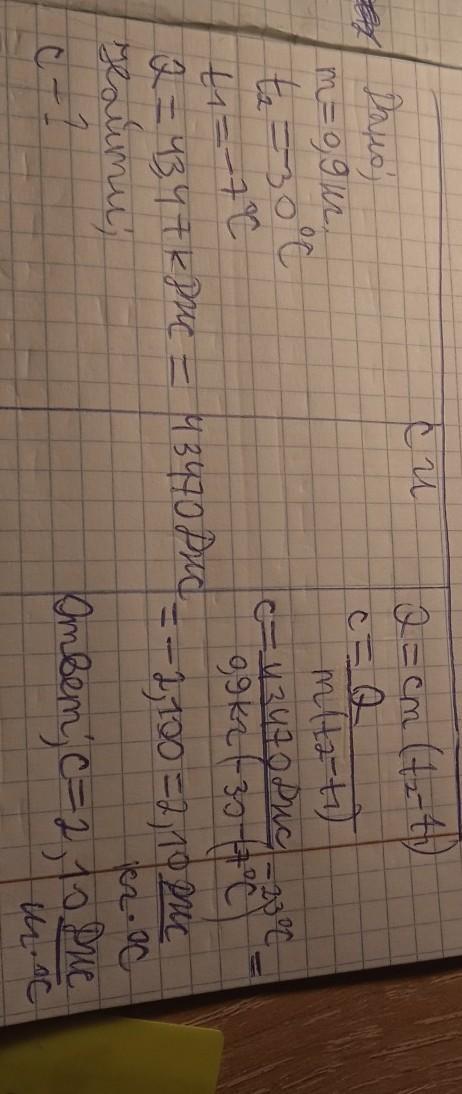 Дано;
m=0,9кг.
t₂=-30°C
t₁=-7°C
Q=4347кДж=43470Дж
Найти;
c-?
СИ
Q=cm(t₂-t₁)
c=Q/m(t₂-t₁)
c=43470Дж/0,9кг(-30-(-7°C) -23°C =
=-2,100=2,10 Дж/кг·°C
Ответ; c=2,10 Дж/кг·°C